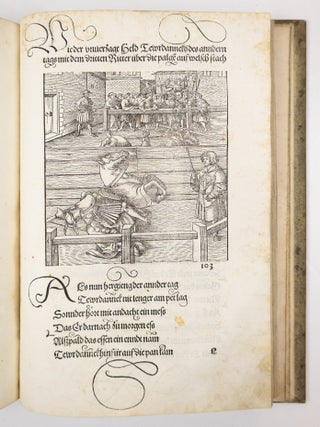 Wie der unuerzagt Held Tewrdannckh des anndern
tags mit dem dritten Ritter über die palgk auf welsch stach
103
Als nun hergieng der annder tag
Tewrdannck nit lenger am pet lag
Sonnder hört mit andacht ein mess
Das Er darnach zu morgen ess
Alspald das essen ein ennd nam
Tewrdannckh hin für auf die pan kam